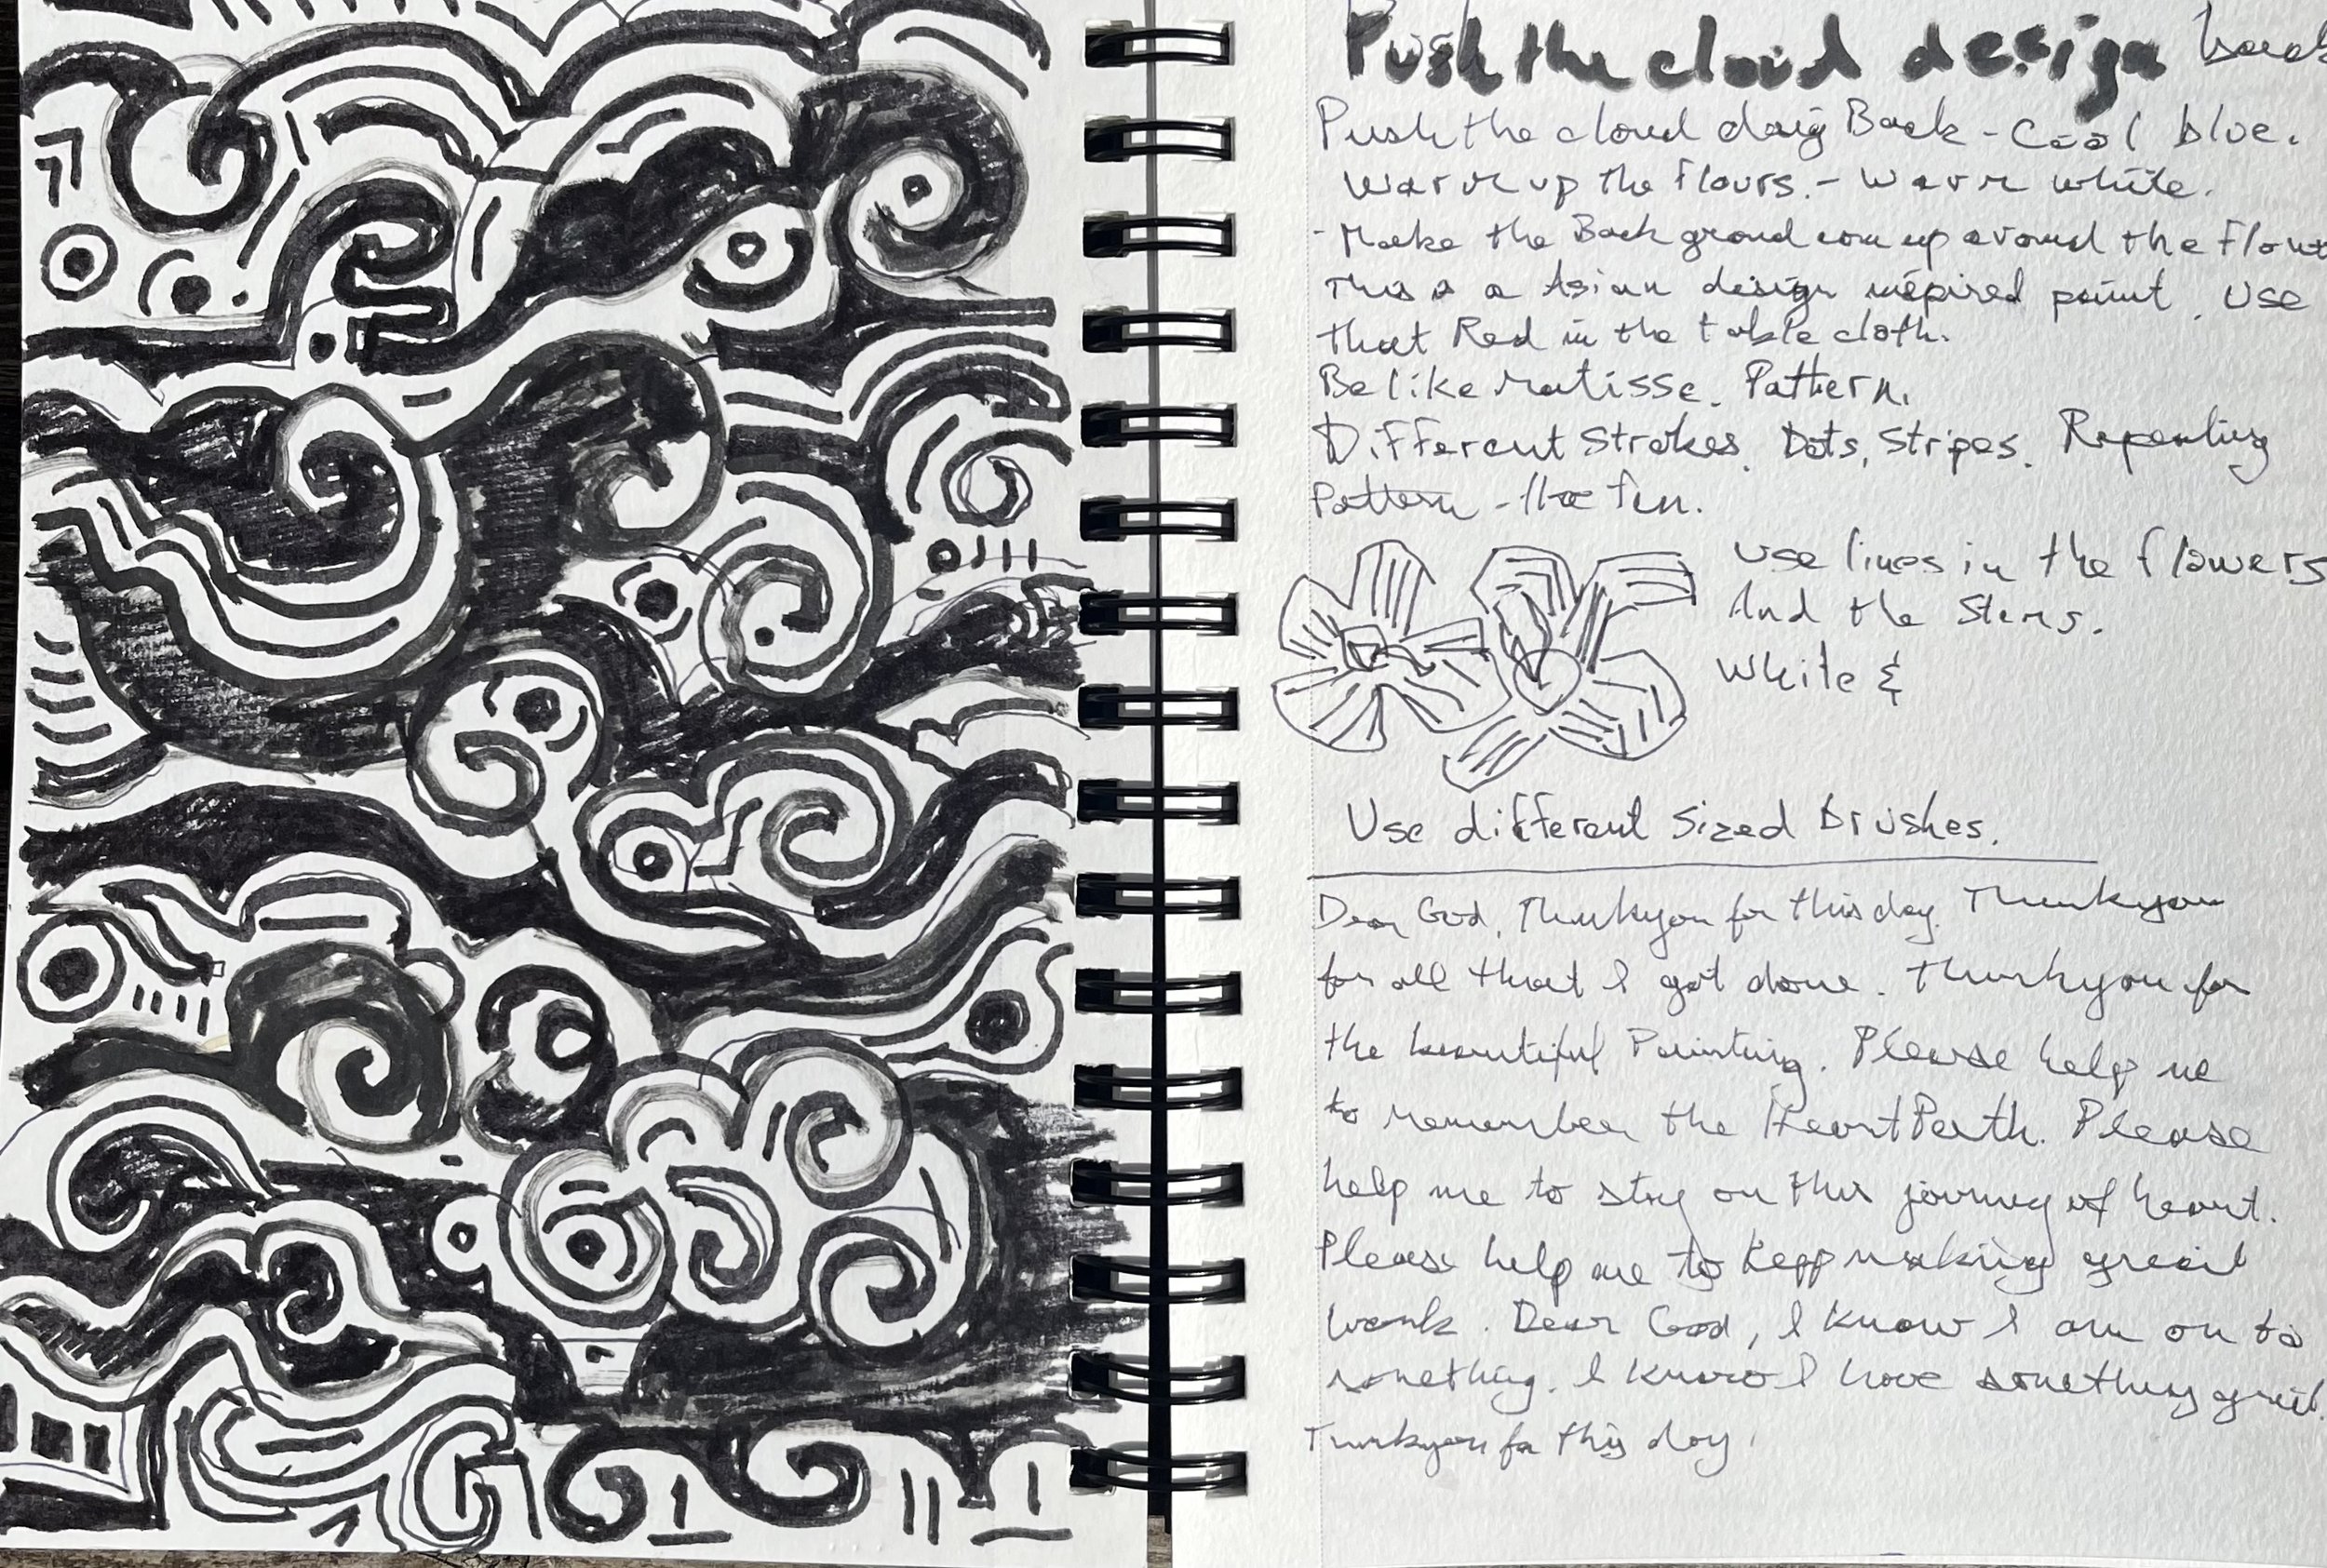 Push the cloud design back
Push the cloud desig Back - Cool blue.
Warm up the flours. - Warm white.
- Make the Back ground com up around the Flow
This is a Asian design inspired paint. Use
that Red in the table cloth.
Be like Matisse. Pattern.
Different Strokes. Dots, Stripes. Repeating
Pattern - Have fun.
Use lines in the flowers
And the Stems.
White &
Use different Sized Brushes.
Dear God, Thankyou for this day. Thankyou
for all that I got done. Thankyou for
the beautiful Painting. Please help me
to remember the Heart Path. Please
help me to stay on this journey of heart.
Please help me to Kepp making great
work. Dear God, I know I am on to
something. I know I have something great.
Thankyou for this day.